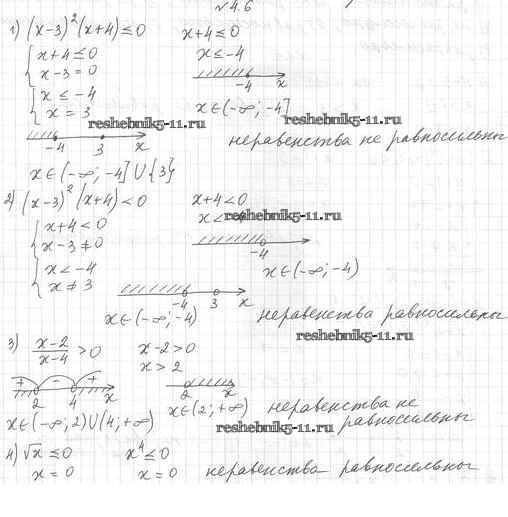 № 4.6
1) (x-3)²(x+4) ≤ 0    x+4 ≤ 0
{ x+4 ≤ 0    x ≤ -4
x-3 = 0
{ x ≤ -4    -4    x
x = 3    x∈(-∞; -4]
reshebnik5-11.ru    reshebnik5-11.ru
-4    3    x    неравенства не равносильны
x∈(-∞; -4] ∪ {3}
2) (x-3)²(x+4) < 0    x+4 < 0
{ x+4 < 0    x < -4
reshebnik5-11.ru
x-3 ≠ 0    -4
{ x < -4    x∈(-∞; -4)
x ≠ 3    -4    3    x
x∈(-∞; -4)    неравенства равносильны
reshebnik5-11.ru
3) (x-2)/(x-4) > 0    x-2 > 0
x > 2
+    -    +
2    4    x    2    x
x∈(-∞; 2)∪(4; +∞)    x∈(2; +∞)    неравенства не
равносильны
reshebnik5-11.ru
4) √x ≤ 0    x⁴ ≤ 0
x = 0    x = 0    неравенства равносильны